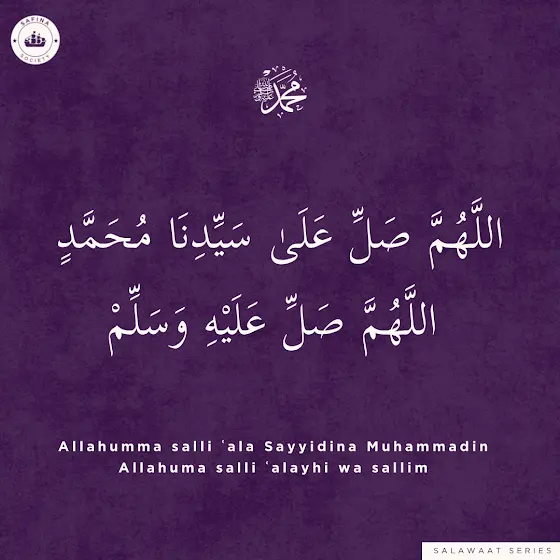 SAFINA
SOCIETY
محمد
اللَّهُمَّ صَلِّ عَلَىٰ سَيِّدِنَا مُحَمَّدٍ
اللَّهُمَّ صَلِّ عَلَيْهِ وَسَلِّمْ
Allahumma salli ʿala Sayyidina Muhammadin
Allahuma salli ʿalayhi wa sallim
SALAWAAT SERIES